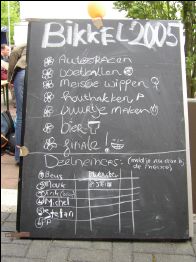 BIKKEL 2005
AUTORACEN
VOETBALLEN
MEISJE WIPPEN
HOUTHAKKEN
VUURTJE MAKEN
BIER
FINALE!
DEELNEMERS: (meld je nu aan bij de
Beus
Mark
Michel
Stefan